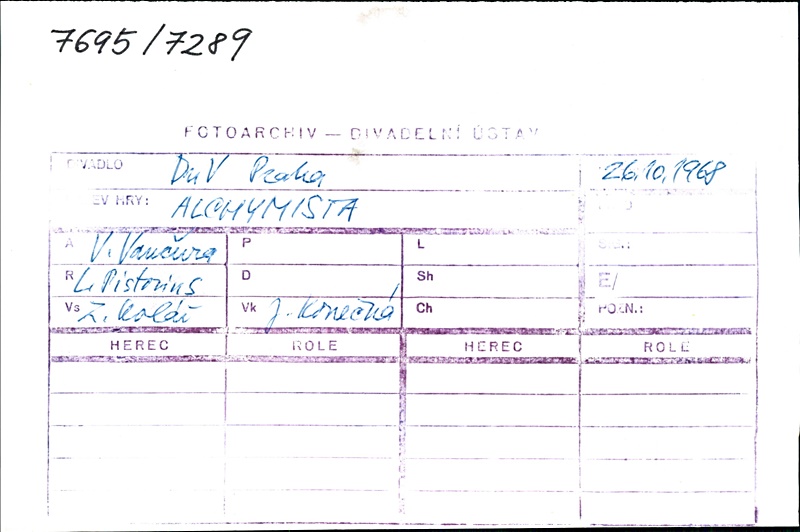 7695/7289
FOTOARCHIV — DIVADELNÍ ÚSTAV
DIVADLO DnV Praha 26.10.1968
EV HRY: ALCHYMISTA
A V. Vančura P L
R L. Pistorius D Sh E/
Vs Z. Kolář Vk J. Konečná Ch POZN.:
HEREC ROLE HEREC ROLE